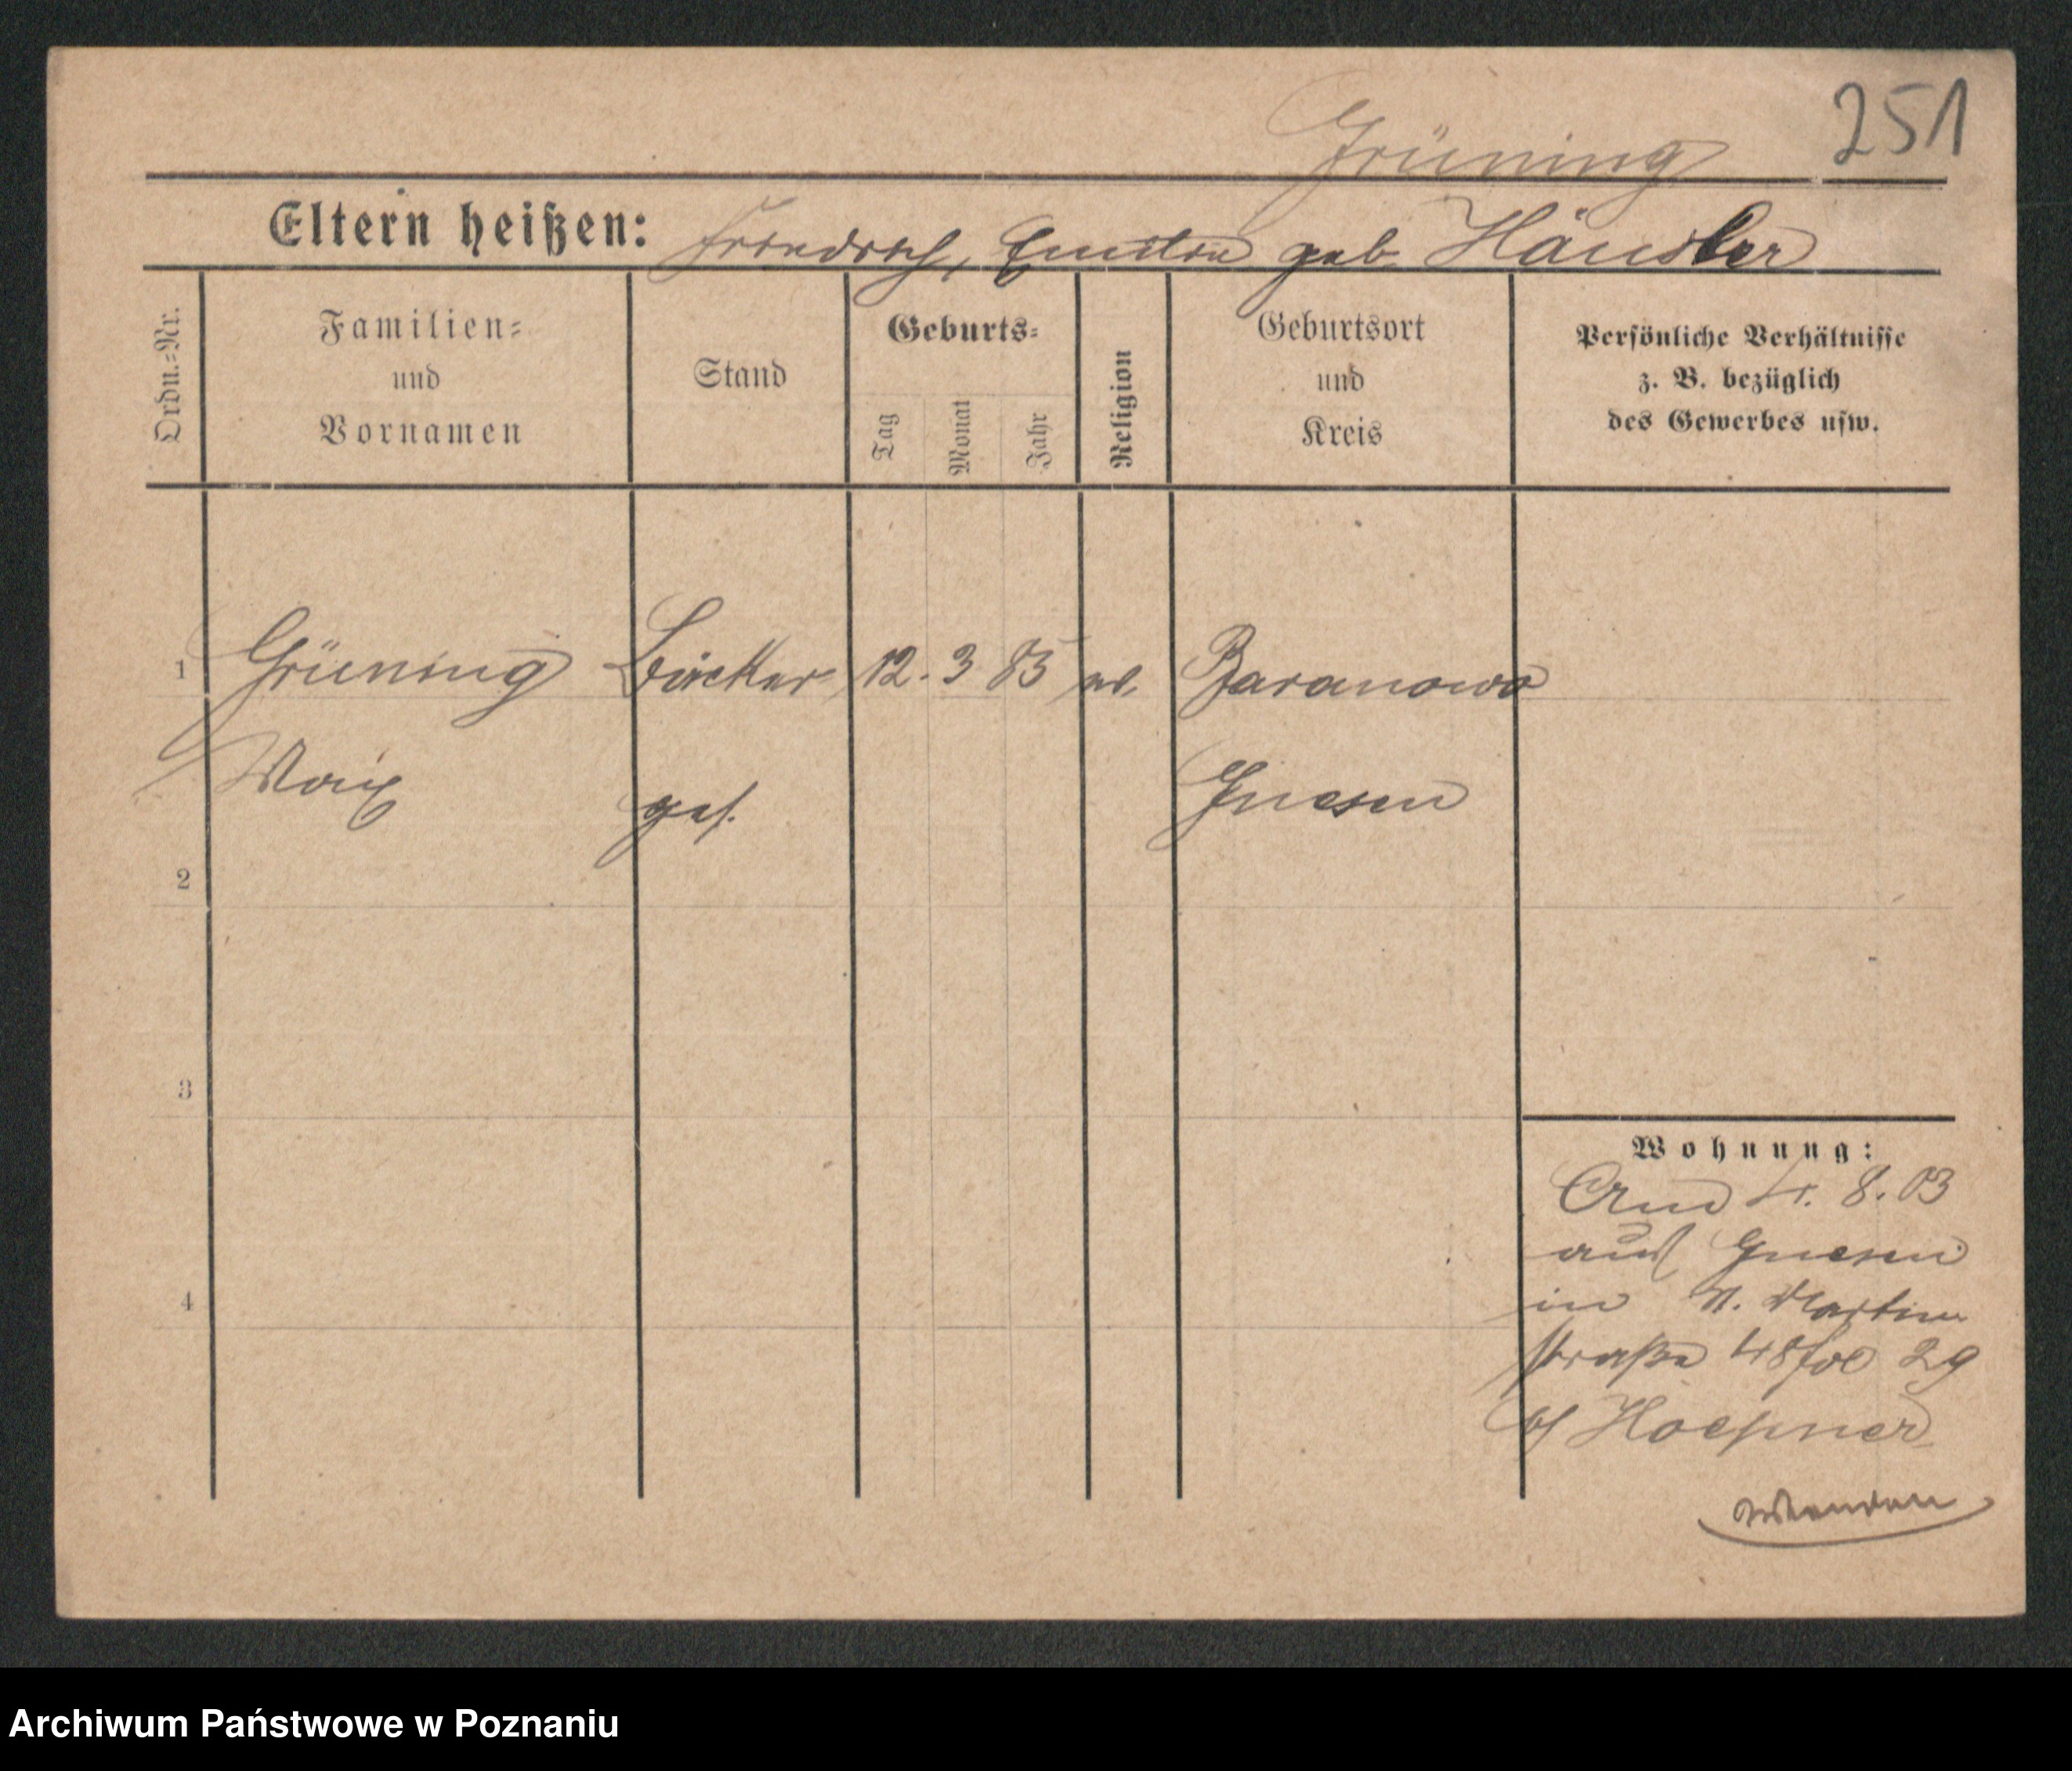 251
Grüning
Eltern heißen: Friedrich, Emilie geb Häusler
Ordn.=Nr.
Familien=
und
Vornamen
Stand
Geburts=
Tag
Monat
Jahr
Religion
Geburtsort
und
Kreis
Persönliche Verhältnisse
z. B. bezüglich
des Gewerbes usw.
1 Grüning Bäcker 12. 3 85 ev. Baranowo
Max ges. Gnesen
2
3
4
Wohnung:
Am 4. 8. 03
aus Gnesen
in St. Martin
straße 48 fol 29
b/ Hoepner
Archiwum Państwowe w Poznaniu